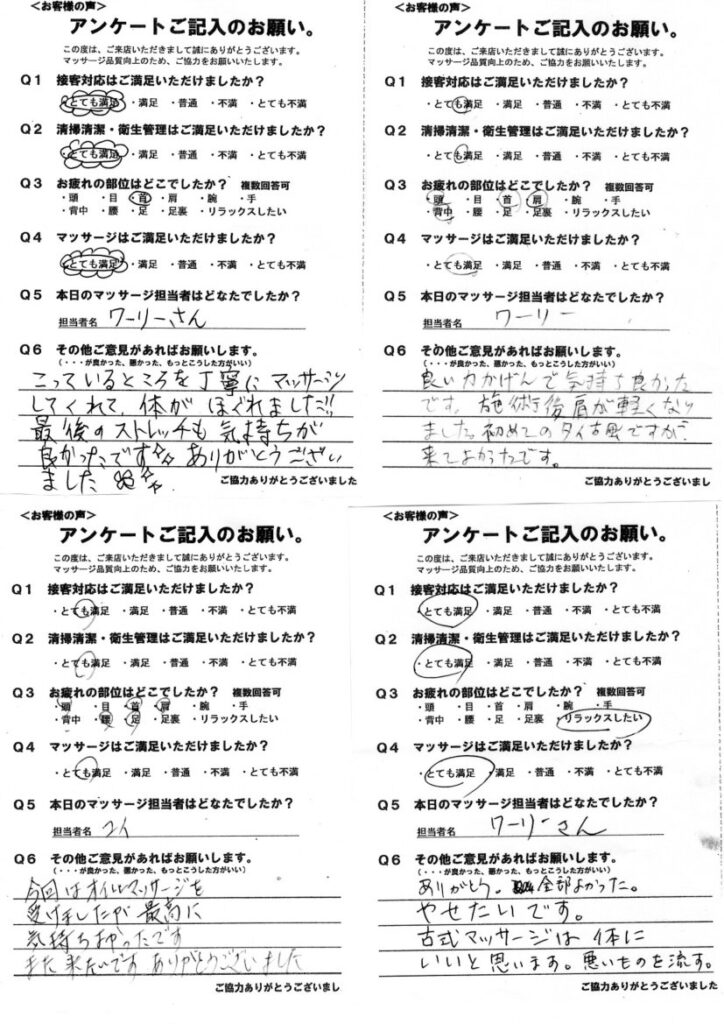 <お客様の声>
アンケートご記入のお願い。
この度は、ご来店いただきまして誠にありがとうございます。
マッサージ品質向上のため、ご協力をお願いいたします。
Q1 接客対応はご満足いただけましたか？
・とても満足 ・満足 ・普通 ・不満 ・とても不満
Q2 清掃清潔・衛生管理はご満足いただけましたか？
・とても満足 ・満足 ・普通 ・不満 ・とても不満
Q3 お疲れの部位はどこでしたか？ 複数回答可
・頭 ・目 ・首 ・肩 ・腕 ・手
・背中 ・腰 ・足 ・足裏 ・リラックスしたい
Q4 マッサージはご満足いただけましたか？
・とても満足 ・満足 ・普通 ・不満 ・とても不満
Q5 本日のマッサージ担当者はどなたでしたか？
担当者名 ワーリーさん
Q6 その他ご意見があればお願いします。
（・・・が良かった、悪かった、もっとこうした方がいい）
こっているところを丁寧にマッサージ
してくれて、体がほぐれました!!
最後のストレッチも気持ちが
良かったです☆☆ ありがとうござい
ました
ご協力ありがとうございました
<お客様の声>
アンケートご記入のお願い。
この度は、ご来店いただきまして誠にありがとうございます。
マッサージ品質向上のため、ご協力をお願いいたします。
Q1 接客対応はご満足いただけましたか？
・とても満足 ・満足 ・普通 ・不満 ・とても不満
Q2 清掃清潔・衛生管理はご満足いただけましたか？
・とても満足 ・満足 ・普通 ・不満 ・とても不満
Q3 お疲れの部位はどこでしたか？ 複数回答可
・頭 ・目 ・首 ・肩 ・腕 ・手
・背中 ・腰 ・足 ・足裏 ・リラックスしたい
Q4 マッサージはご満足いただけましたか？
・とても満足 ・満足 ・普通 ・不満 ・とても不満
Q5 本日のマッサージ担当者はどなたでしたか？
担当者名 ワーリー
Q6 その他ご意見があればお願いします。
（・・・が良かった、悪かった、もっとこうした方がいい）
良い力かげんで気持ち良かった
です。施術後肩が軽くなり
ました。初めてのタイ古風ですが
来てよかったです。
ご協力ありがとうございまし
<お客様の声>
アンケートご記入のお願い。
この度は、ご来店いただきまして誠にありがとうございます。
マッサージ品質向上のため、ご協力をお願いいたします。
Q1 接客対応はご満足いただけましたか？
・とても満足 ・満足 ・普通 ・不満 ・とても不満
Q2 清掃清潔・衛生管理はご満足いただけましたか？
・とても満足 ・満足 ・普通 ・不満 ・とても不満
Q3 お疲れの部位はどこでしたか？ 複数回答可
・頭 ・目 ・首 ・肩 ・腕 ・手
・背中 ・腰 ・足 ・足裏 ・リラックスしたい
Q4 マッサージはご満足いただけましたか？
・とても満足 ・満足 ・普通 ・不満 ・とても不満
Q5 本日のマッサージ担当者はどなたでしたか？
担当者名 ユイ
Q6 その他ご意見があればお願いします。
（・・・が良かった、悪かった、もっとこうした方がいい）
今回はオイルマッサージを
受けましたが最高に
気持ちよかったです
また来たいです ありがとうございました
ご協力ありがとうございまし
<お客様の声>
アンケートご記入のお願い。
この度は、ご来店いただきまして誠にありがとうございます。
マッサージ品質向上のため、ご協力をお願いいたします。
Q1 接客対応はご満足いただけましたか？
・とても満足 ・満足 ・普通 ・不満 ・とても不満
Q2 清掃清潔・衛生管理はご満足いただけましたか？
・とても満足 ・満足 ・普通 ・不満 ・とても不満
Q3 お疲れの部位はどこでしたか？ 複数回答可
・頭 ・目 ・首 ・肩 ・腕 ・手
・背中 ・腰 ・足 ・足裏 ・リラックスしたい
Q4 マッサージはご満足いただけましたか？
・とても満足 ・満足 ・普通 ・不満 ・とても不満
Q5 本日のマッサージ担当者はどなたでしたか？
担当者名 ワーリーさん
Q6 その他ご意見があればお願いします。
（・・・が良かった、悪かった、もっとこうした方がいい）
ありがとう。全部よかった。
やせたいです。
古式マッサージは体に
いいと思います。悪いものを流す。
ご協力ありがとうございまし